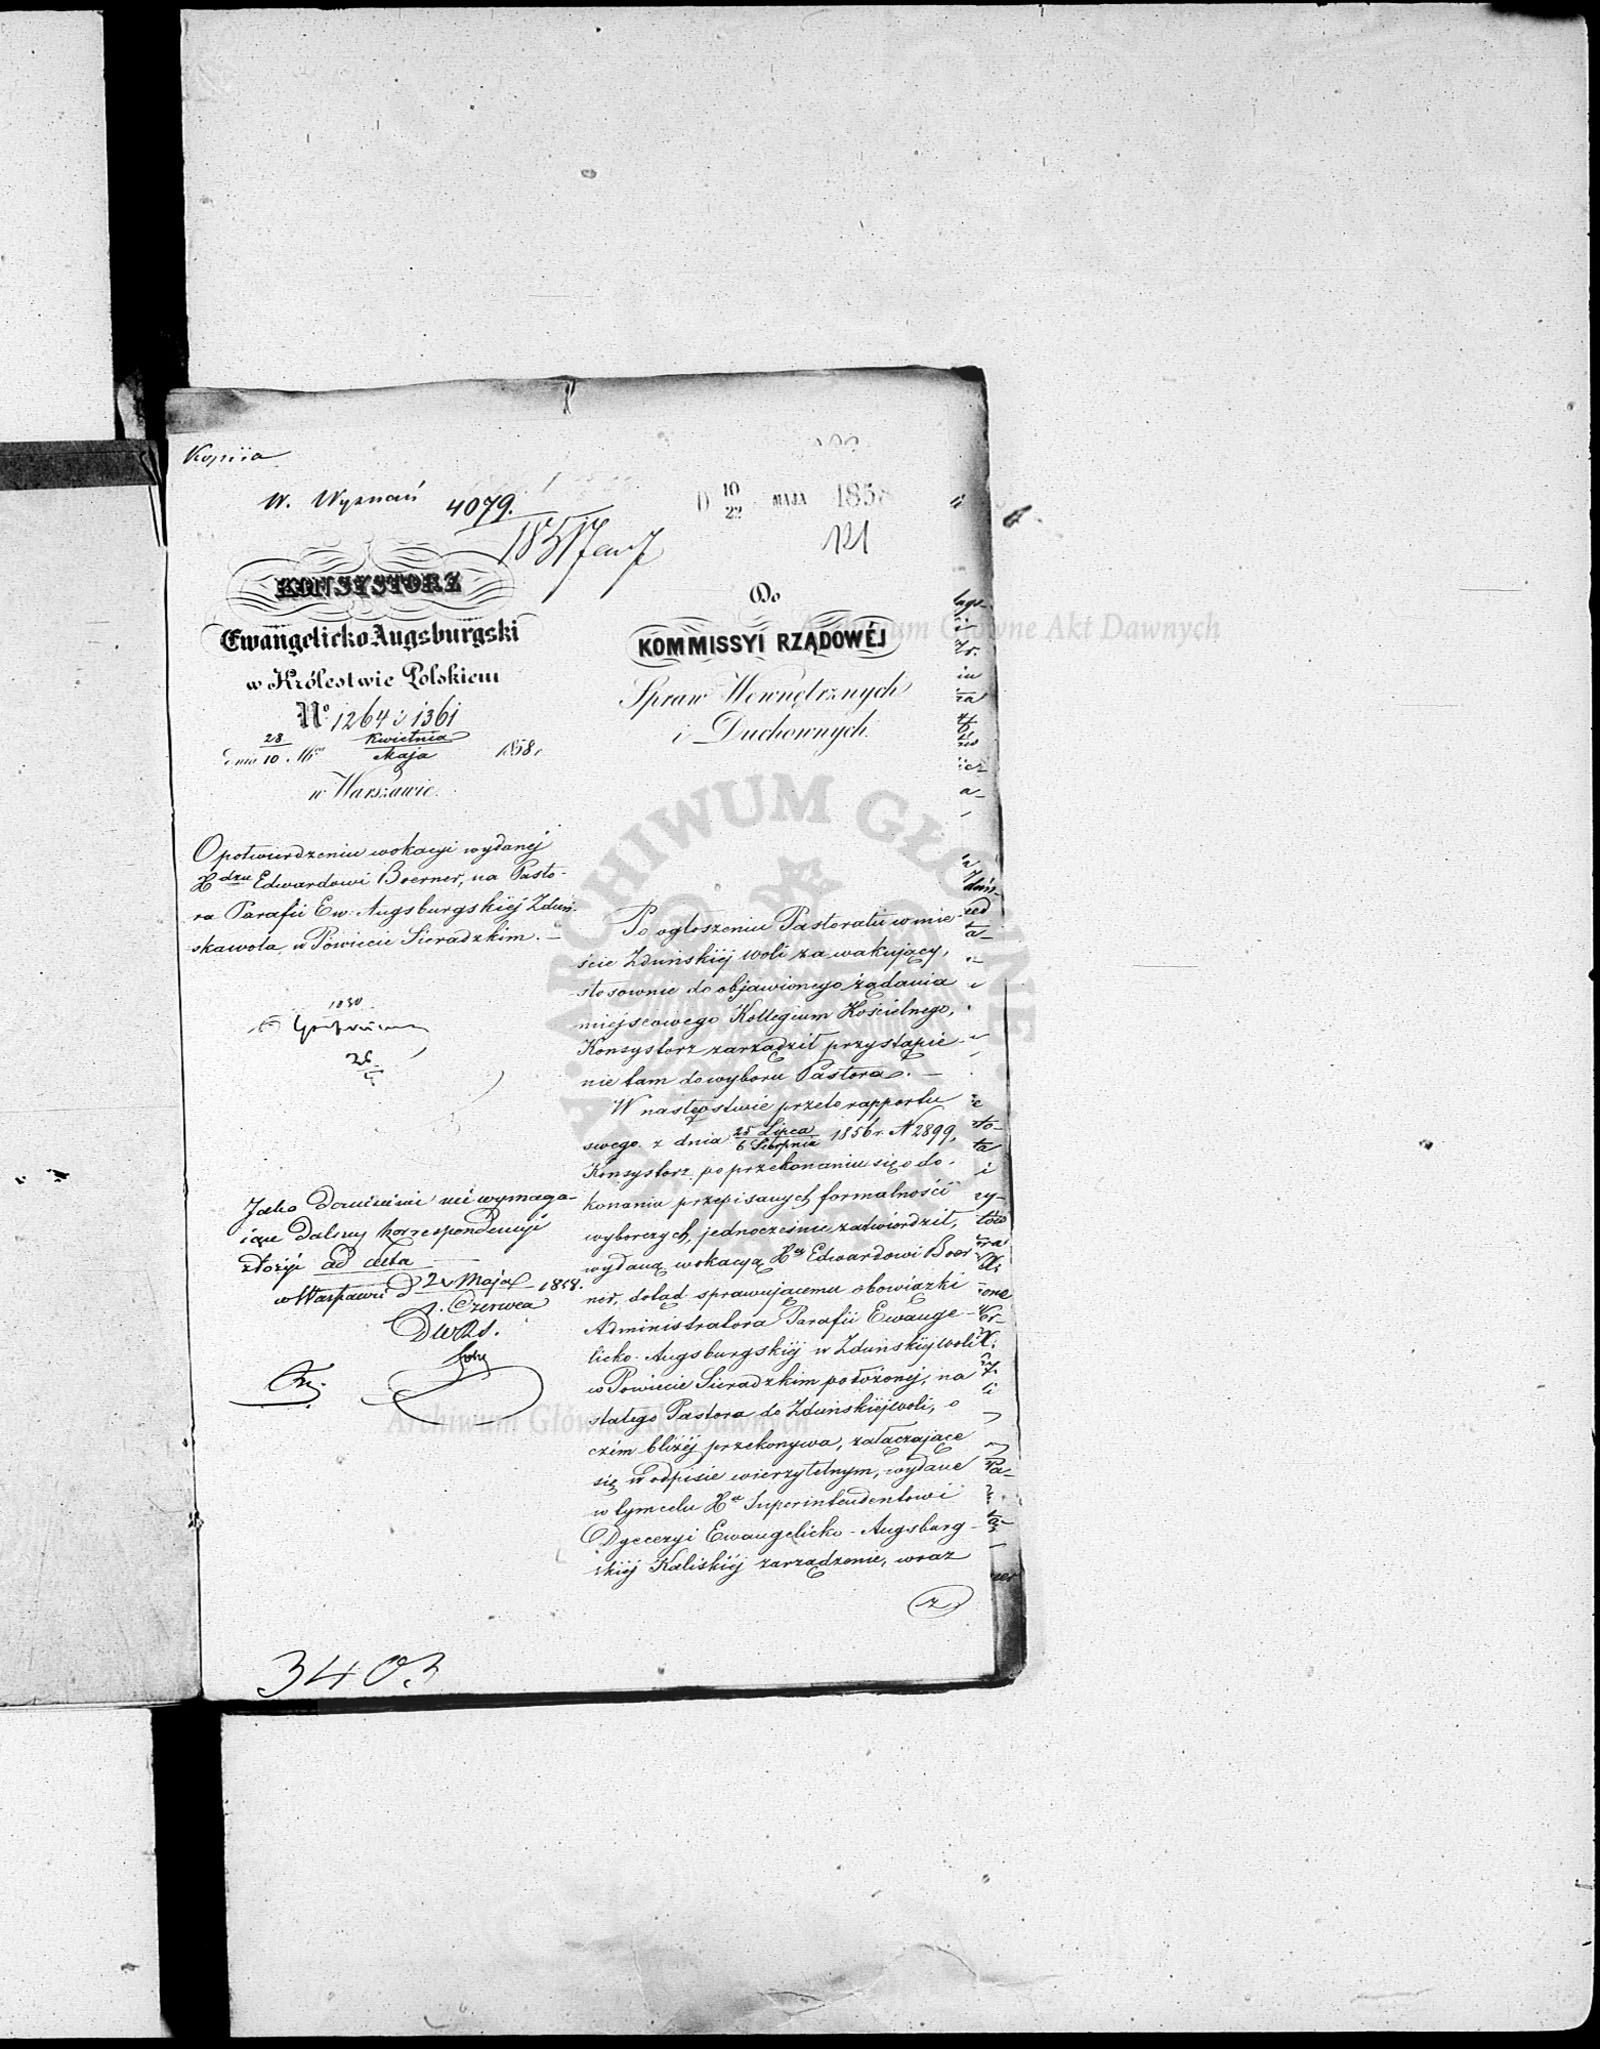 Kopiia
W. Wyznań 4079.
D 10/22 MAJA 1858
121
KONSYSTORZ
Ewangelicko Augsburgski
w Królestwie Polskiem
No 1264 i 1361
dnia 28/10 Kwietnia/Maja 1858 r.
w Warszawie.
O potwierdzeniu wokacyi wydanéj
Xdzu Edwardowi Boerner, na Pasto-
ra Parafii Ew: Augsburgskiéj Zduń-
skawola, w Powiecie Sieradzkim. —
Jako doniesienie nie wymaga-
iące dalszey korrespondencyi
złożyć ad acta
w Warszawie d 2 Maja/Czerwca 1858.
3403
Do
KOMMISSYI RZĄDOWÉJ
Spraw Wewnętrznych
i Duchownych
Po ogłoszeniu Pastoratu w mie-
ście Zduńskiéj woli za wakujący,
stosownie do objawionego żądania
miejscowego Kollegium Kościelnego,
Konsystorz zarządził przystąpie-
nie tam do wyboru Pastora. —
W następstwie przeto rapportu
swego z dnia 25 Lipca/6 Sierpnia 1856 r. N 2899,
Konsystorz po przekonaniu się o do-
konaniu przepisanych formalności
wyborczych, jednocześnie zatwierdził,
wydaną wokacyą Xdzu Edwardowi Boer-
ner, dotąd sprawującemu obowiązki
Administratora Parafii Ewange-
licko-Augsburgskiéj w Zduńskiéj woli
w Powiecie Sieradzkim położonéj, na
stałego Pastora do Zduńskiéjwoli, o
czém bliżéj przekonywa, załączające
się w odpisie wierzytelnym, wydane
w tym celu Xu Superintendentowi
Dyecezyi Ewangelicko-Augsburg-
skiéj Kaliskiéj zarządzenie, wraz
z
Archiwum Główne Akt Dawnych
Archiwum Główne Akt Dawnych
ARCHIWUM GŁÓWNE